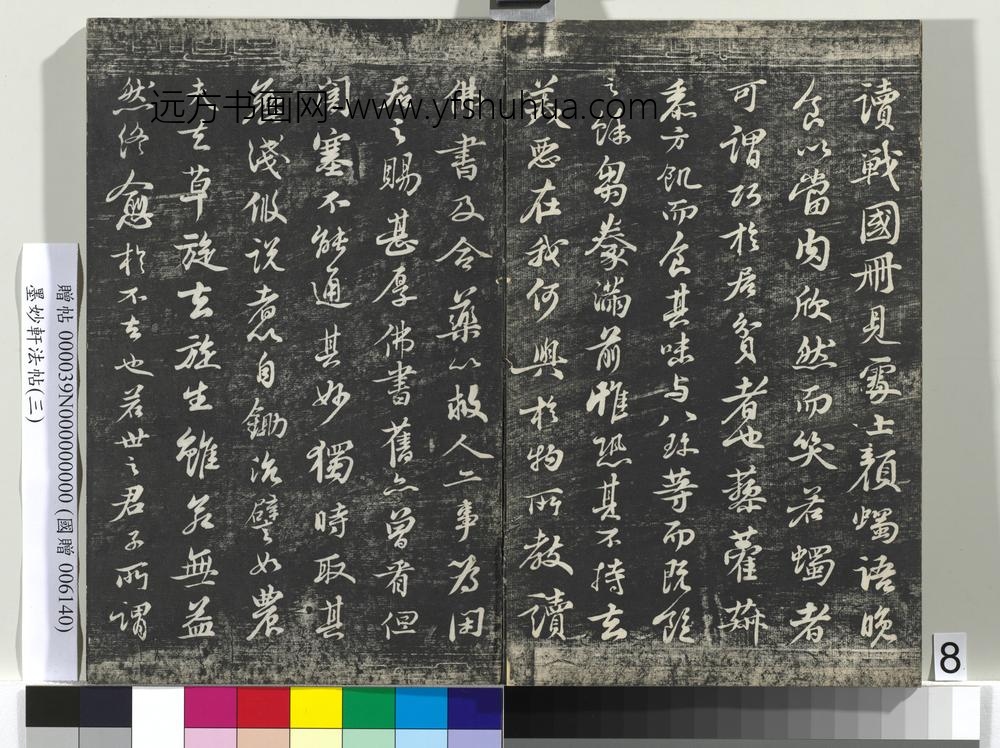 讀戰國冊見處士顏蠋語晚
食以當肉欣然而笑若蠋者
可謂巧於居貧者也藜藿
黍方飢而食其味与八珍等而既飽
之餘芻豢滿前惟恐其不持去
美惡在我何與於物所教讀
佛書及合藥以救人二事為閑
居之賜甚厚佛書舊亦曾看但
闇塞不能通其妙獨時取其
麤淺假說者以自鋤治譬如農
夫去草旋去旋生雖若無益
然終愈於不去也若世之君子所謂
远方书画网-www.yfshuhua.com
贈帖 000039N000000000 (國贈 006140)
墨妙軒法帖(三)
8